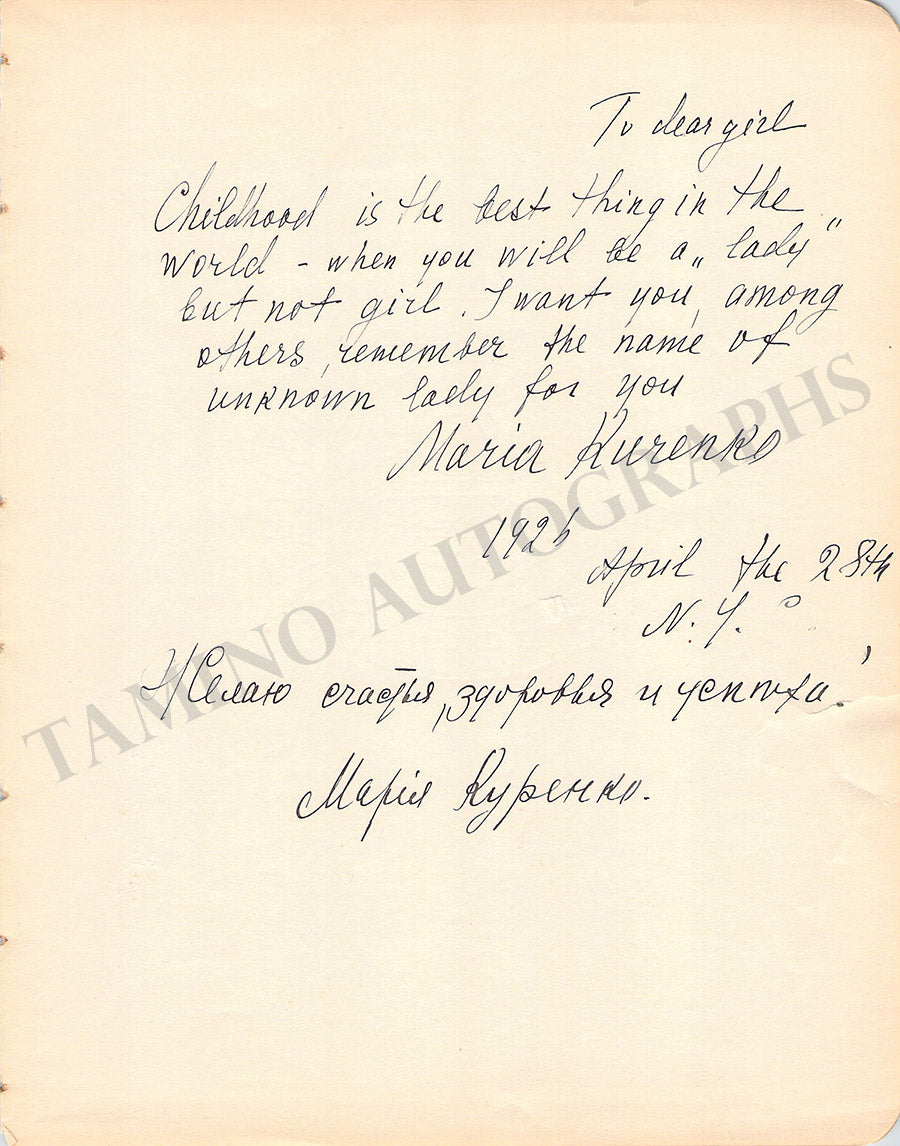 To dear girl
Childhood is the best thing in the
world - when you will be a „lady"
but not girl. I want you, among
others, remember the name of
unknown lady for you
Maria Kurenko
1926
April the 28th
N.Y.
Желаю счастья, здоровья и успѣха!
Марія Куренко.
TAMINO AUTOGRAPHS